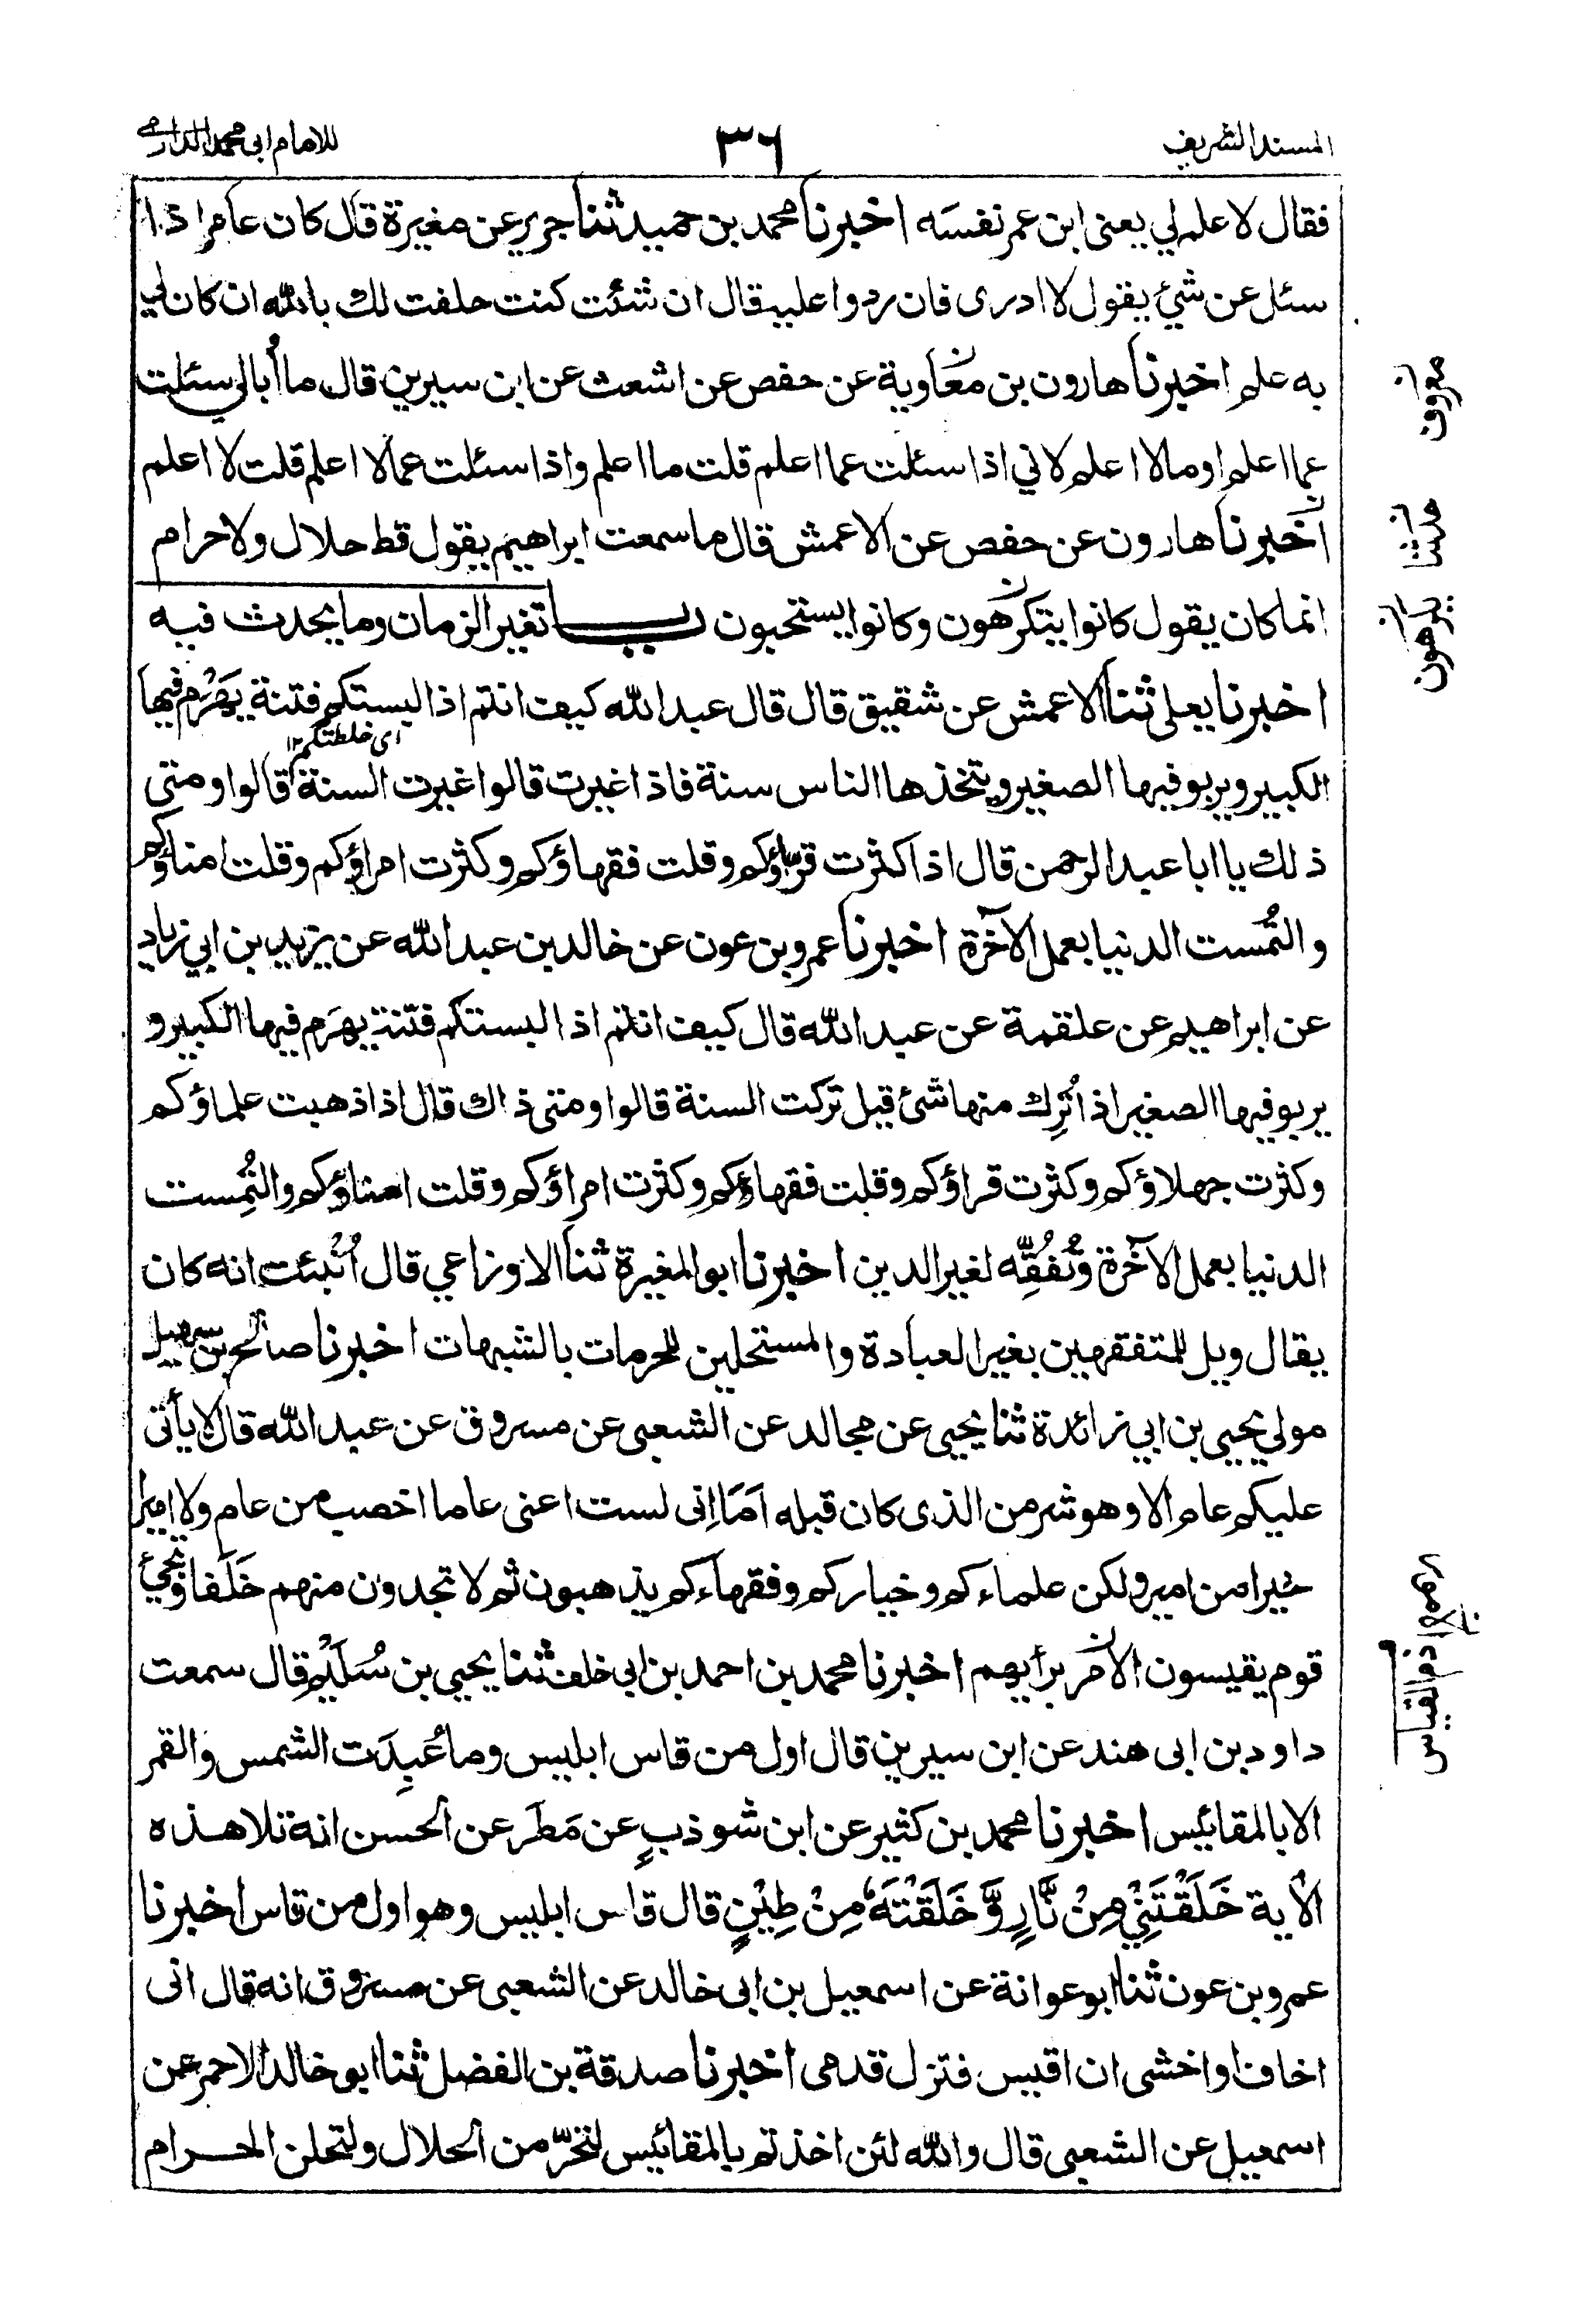 المسند الشريف
٣٦
للامام ابی محمد الدارمی
فقال لا علم لي يعنى ابن عمر نفسَه اخبرنا محمد بن حميد ثنا جرير عن مغيرة قال كان عامر اذا
سئل عن شئ يقول لا ادرى فان ردوا عليه قال ان شئت كنت حلفت لك بالله ان كان لي
به علم اخبرنا هارون بن معاوية عن حفص عن اشعث عن ابن سيرين قال ما أُبالي سئلت
عما اعلم او ما لا اعلم لاني اذا سئلت عما اعلم قلت ما اعلم واذا سئلت عما لا اعلم قلت لا اعلم
اخبرنا هارون عن حفص عن الاعمش قال ما سمعت ابراهيم يقول قط حلال ولا حرام
انما كان يقول كانوا يتكرهون وكانوا يستحبون باب تغير الزمان وما يحدث فيه
اخبرنا يعلى ثنا الاعمش عن شقيق قال قال عبد الله كيف انتم اذا لبستكم فتنة يَهْرَم فيها
اى خلطتكم ١٢
الكبير ويربو فيها الصغير ويتخذها الناس سنة فاذا غيرت قالوا غيرت السنة قالوا ومتى
ذلك يا ابا عبد الرحمن قال اذا كثرت قرّاؤكم وقلت فقهاؤكم وكثرت امراؤكم وقلت امناؤكم
والتُمست الدنيا بعمل الآخرة اخبرنا عمرو بن عون عن خالد بن عبد الله عن يزيد بن ابي زياد
عن ابراهيم عن علقمة عن عبد الله قال كيف انتم اذا لبستكم فتنة يهرَم فيها الكبير و
يربو فيها الصغير اذا تُرِك منها شئ قيل تركت السنة قالوا ومتى ذاك قال اذا ذهبت علماؤكم
وكثرت جهلاؤكم وكثرت قراؤكم وقلت فقهاؤكم وكثرت امراؤكم وقلت امناؤكم والتُمِست
الدنيا بعمل الآخرة وتُفُقِّه لغير الدين اخبرنا ابو المغيرة ثنا الاوزاعي قال أُنْبئت انه كان
يقال ويل للمتفقهين بغير العبادة والمستحلين للحرمات بالشبهات اخبرنا صالح بن سهيل
مولي يحيى بن ابي زائدة ثنا يحيى عن مجالد عن الشعبى عن مسروق عن عبد الله قال لا يأتى
عليكم عام الا وهو شر من الذى كان قبله اَمَا اِنى لست اعنى عاما اخصب من عام ولا اميرا
خيرا من امير ولكن علماءكم وخياركم وفقهاءكم يذهبون ثم لا تجدون منهم خَلَفا وتجئ
قوم يقيسون الامر برأيهم اخبرنا محمد بن احمد بن ابى خلف ثنا يحيى بن سُلَيْم قال سمعت
داود بن ابى هند عن ابن سيرين قال اول من قاس ابليس وما عُبِدَت الشمس والقمر
الا بالمقائيس اخبرنا محمد بن كثير عن ابن شوذبٍ عن مَطَر عن الحسن انه تلا هذه
الآية خَلَقْتَنِيْ مِنْ نَّارٍ وَّ خَلَقْتَهٗ مِنْ طِيْنٍ قال قاس ابليس وهو اول من قاس اخبرنا
عمرو بن عون ثنا ابو عوانة عن اسمعيل بن ابى خالد عن الشعبى عن مسروق انه قال انى
اخاف او اخشى ان اقيس فتزل قدمى اخبرنا صدقة بن الفضل ثنا ابو خالد الاحمر عن
اسمعيل عن الشعبى قال والله لئن اخذتم بالمقائيس لتحرّمن الحلال ولتحلن الحرام
معروف
حدثنا
يكرهون
ذم القياس